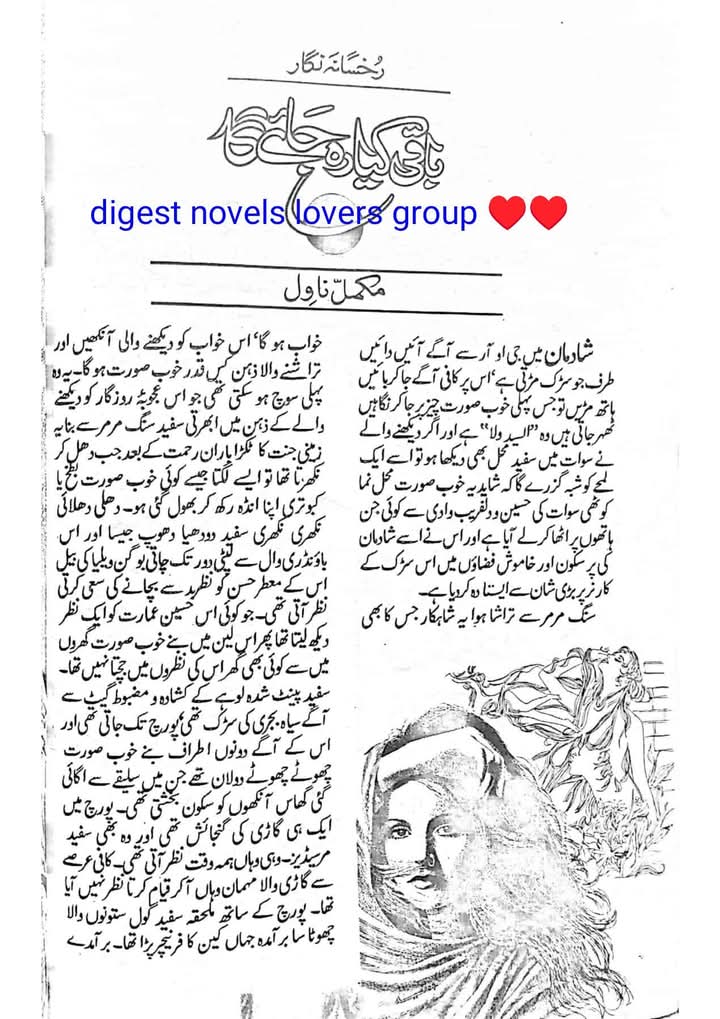 رُخسانہ نگار
باقی کیا رہ جائے گا
digest novels lovers group ♥♥
مکمل ناول
شادمان میں جی او آر سے آگے آئیں دائیں
طرف جو سڑک مڑتی ہے‘ اس پر کافی آگے جا کر بائیں
ہاتھ مڑیں تو جس پہلی خوب صورت چیز پر جا کر نگاہیں
ٹھہر جاتی ہیں وہ ”السید ولا“ ہے اور اگر دیکھنے والے
نے سوات میں سفید محل بھی دیکھا ہو تو اسے ایک
لمحے کو شبہ گزرے گا کہ شاید یہ خوب صورت محل نما
کوٹھی سوات کی حسین و دلفریب وادی سے کوئی جن
ہاتھوں پر اٹھا کر لے آیا ہے اور اس نے اسے شادمان
کی پر سکون اور خاموش فضاؤں میں اس سڑک کے
کارنر پر بڑی شان سے ایستادہ کر دیا ہے۔
سنگ مرمر سے تراشا ہوا یہ شاہکار جس کا بھی
خواب ہو گا‘ اس خواب کو دیکھنے والی آنکھیں اور
تراشنے والا ذہن کس قدر خوب صورت ہو گا۔ یہ وہ
پہلی سوچ ہو سکتی تھی جو اس عجوبۂ روزگار کو دیکھنے
والے کے ذہن میں ابھرتی سفید سنگ مرمر سے بنا یہ
زمینی جنت کا ٹکڑا باران رحمت کے بعد جب دھل کر
نکھرتا تھا تو ایسے لگتا جیسے کوئی خوب صورت بطخ یا
کبوتری اپنا انڈہ رکھ کر بھول گئی ہو۔ دھلی دھلائی
نکھری نکھری سفید دودھیا دھوپ جیسا اور اس
باؤنڈری وال سے لپٹی دور تک جاتی بوگن ویلیا کی بیل
اس کے معطر حسن کو نظر بد سے بچانے کی سعی کرتی
نظر آتی تھی۔ جو کوئی اس حسین عمارت کو ایک نظر
دیکھ لیتا تھا پھر اس لین میں بنے خوب صورت گھروں
میں سے کوئی بھی گھر اس کی نظروں میں جچتا نہیں تھا۔
سفید پینٹ شدہ لوہے کے کشادہ و مضبوط گیٹ سے
آگے سیاہ بجری کی سڑک تھی‘ پورچ تک جاتی تھی اور
اس کے آگے دونوں اطراف بنے خوب صورت
چھوٹے چھوٹے دو لان تھے جن میں سلیقے سے اگائی
گئی گھاس آنکھوں کو سکون بخشتی تھی۔ پورچ میں
ایک ہی گاڑی کی گنجائش تھی اور وہ بھی سفید
مرسیڈیز۔ وہی وہاں ہمہ وقت نظر آتی تھی۔ کافی عرصے
سے گاڑی والا مہمان وہاں آ کر قیام کرتا نظر نہیں آیا
تھا۔ پورچ کے ساتھ ملحقہ سفید گول ستونوں والا
چھوٹا سا برآمدہ جہاں کین کا فرنیچر پڑا تھا۔ برآمدے